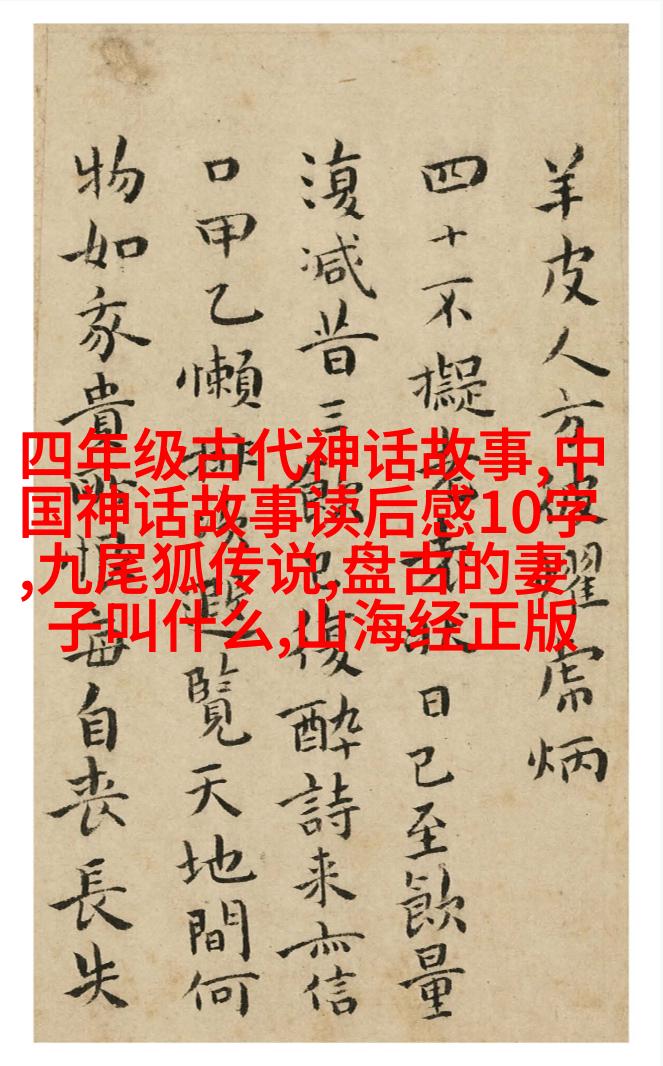 羊皮人方耀常炳
四十不擬日已至飲量
復減昔三飲已復醉詩来亦信
口甲乙懶覽天地間何
物如豕貴自喪長失
四年级古代神话故事,中
国神话故事读后感10字
,九尾狐传说,盘古的妻
子叫什么,山海经正版